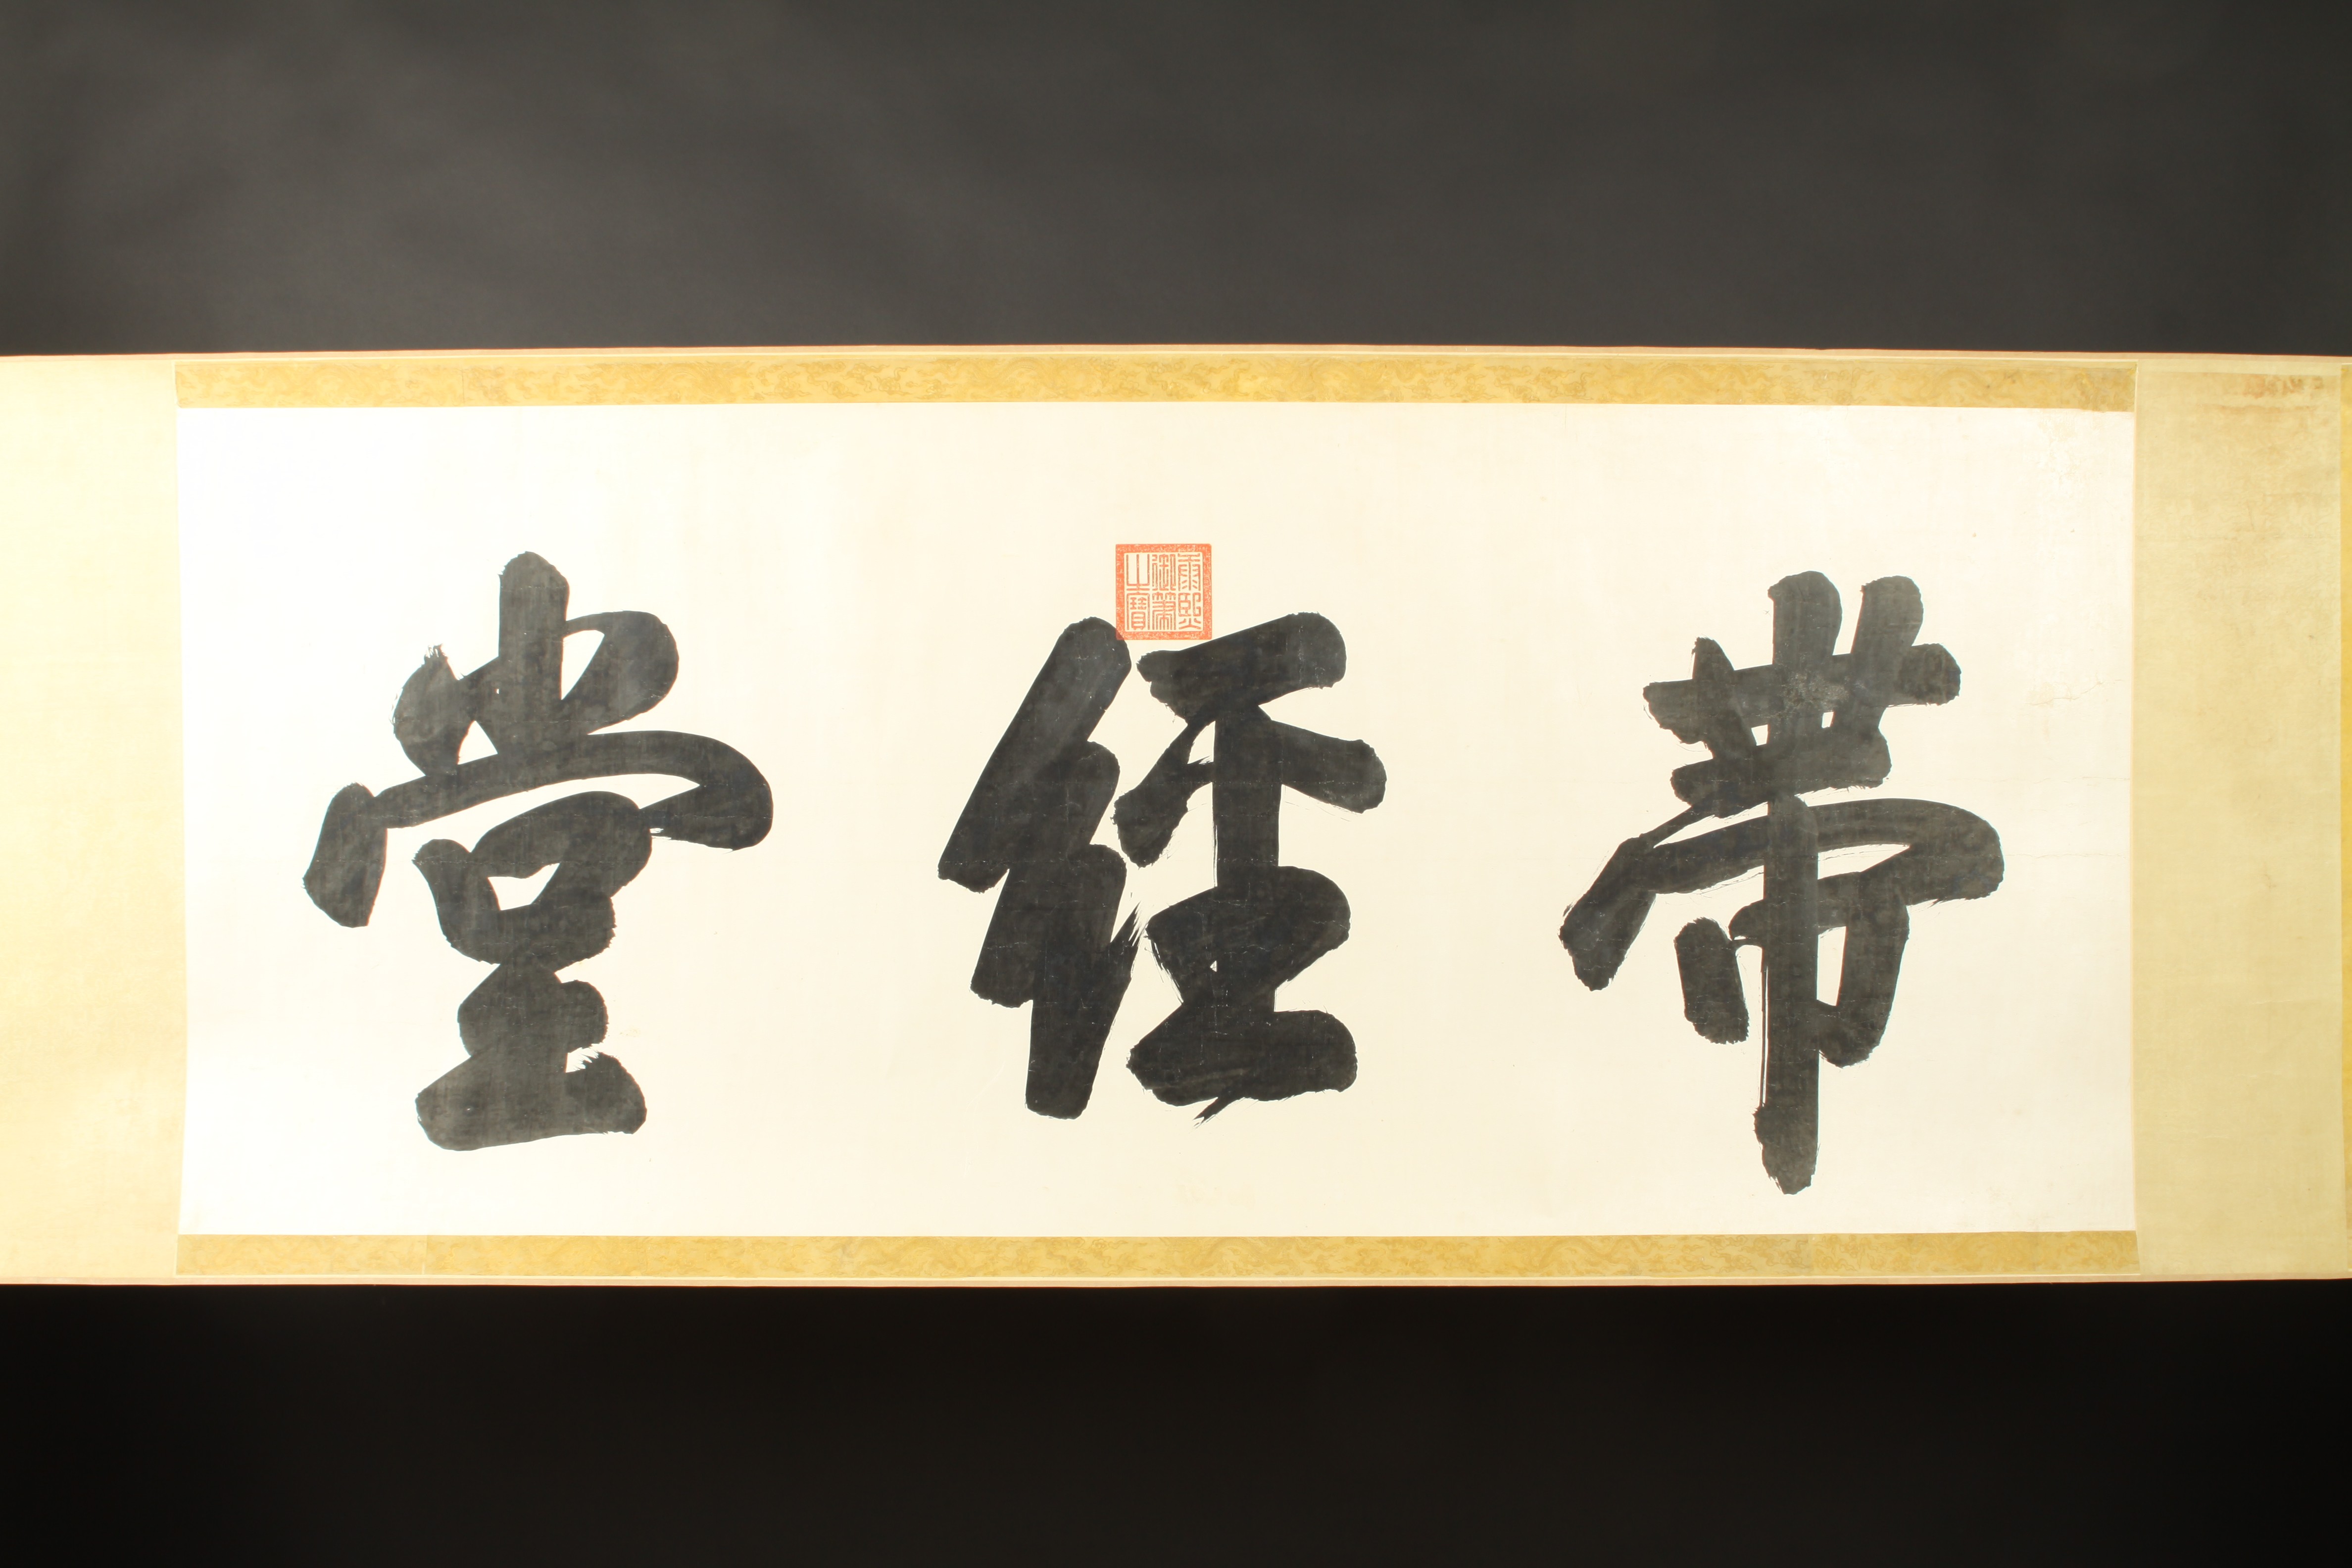 帶經堂
康熙
御筆
之寶